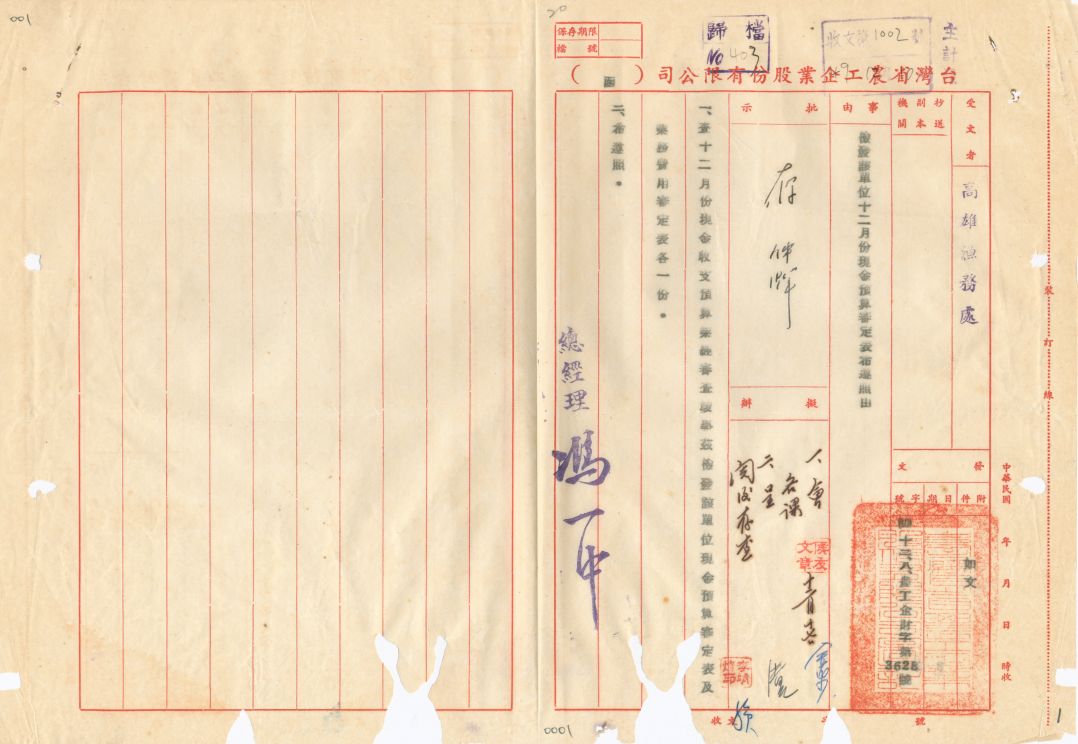 保存期限
檔號
歸檔
NO 403
收文 1002 號
主計
台灣省農工企業股份有限公司（ ）函
受文者
高雄漁務處
抄送副本機關
事由
檢發該單位十二月份現金預算審定表布遵照由
批示
存
擬辦
人會
各課
六呈
閱後存查
發文
附件
日期
字號
如文
工企財字第3628號
中華民國 年 月 日 時收
一、查十二月份現金收支預算業經審查竣事茲檢發該單位現金預算審定表及
業務費用審定表各一份。
二、布遵照。
總經理
收文 字 號
裝訂線
001
0001
1